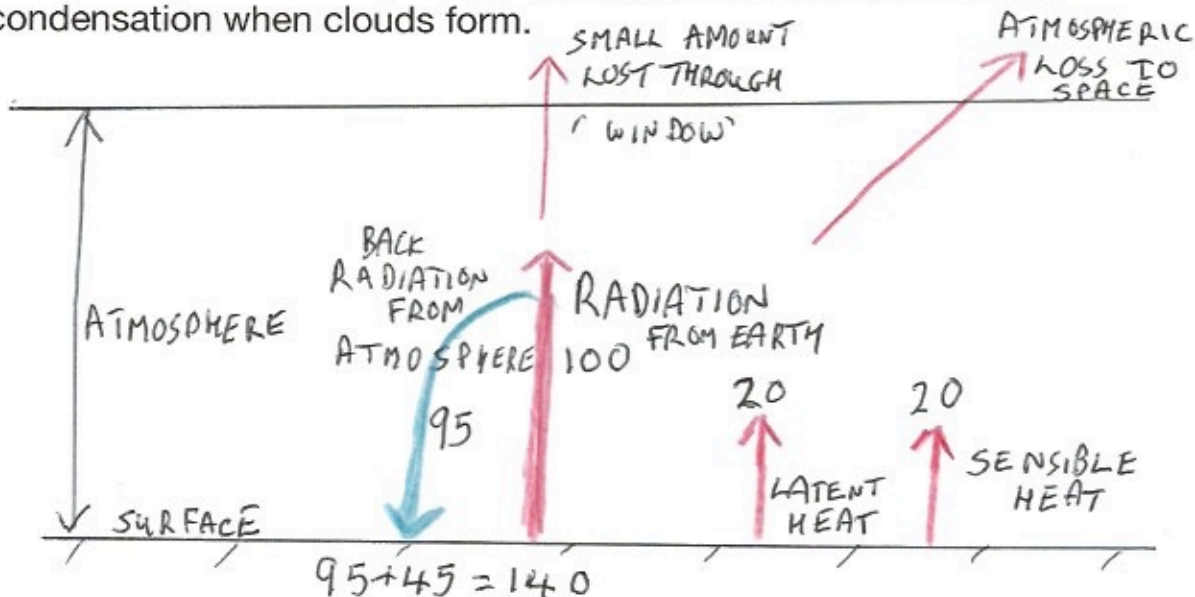 condensation when clouds form.
SMALL AMOUNT
LOST THROUGH
'WINDOW'
ATMOSPHERIC
LOSS TO
SPACE
BACK
RADIATION
FROM
ATMOSPHERE
95
RADIATION
FROM EARTH
100
ATMOSPHERE
20
LATENT
HEAT
20
SENSIBLE
HEAT
SURFACE
95+45=140